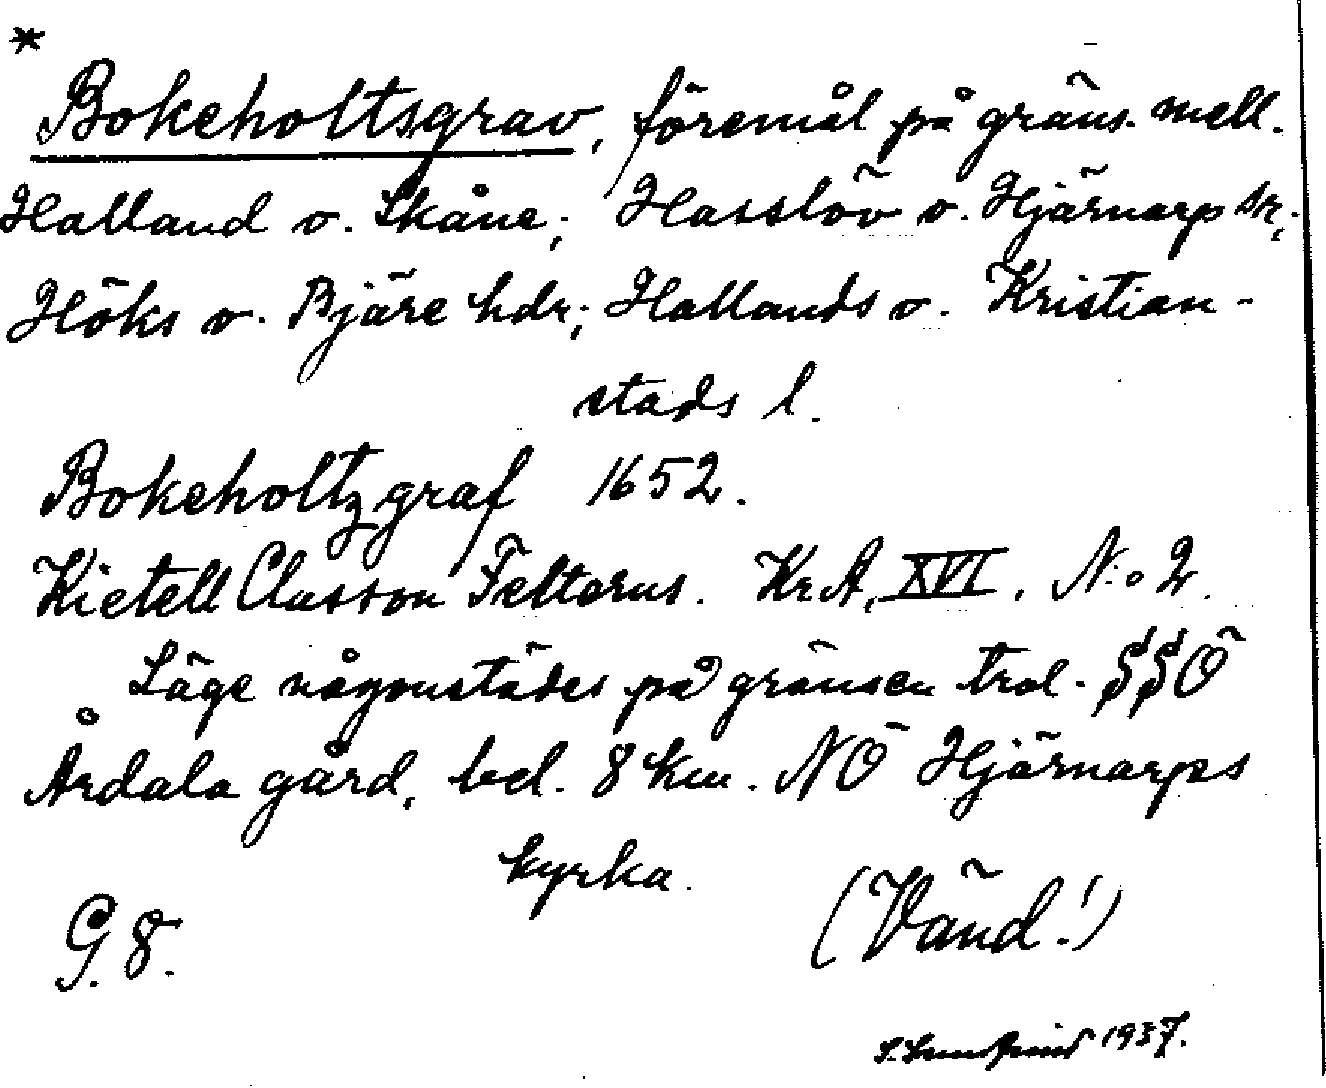 *
Bokeholtsgrav, föremål på gräns. mell.
Halland o. Skåne; Hasslöv o. Hjärnarp snr;
Höks o. Bjäre hdr; Hallands o. Kristian-
stads l.
Bokeholtzgraf 1652.
Kietell Classon Felterus. Kr.A, XVI. N:o 2.
Läge någonstädes på gränsen trol. SSÖ
Årdala gård, bel. 8 km. NÖ Hjärnarps
kyrka.
G.8. (Vänd!)
1937.